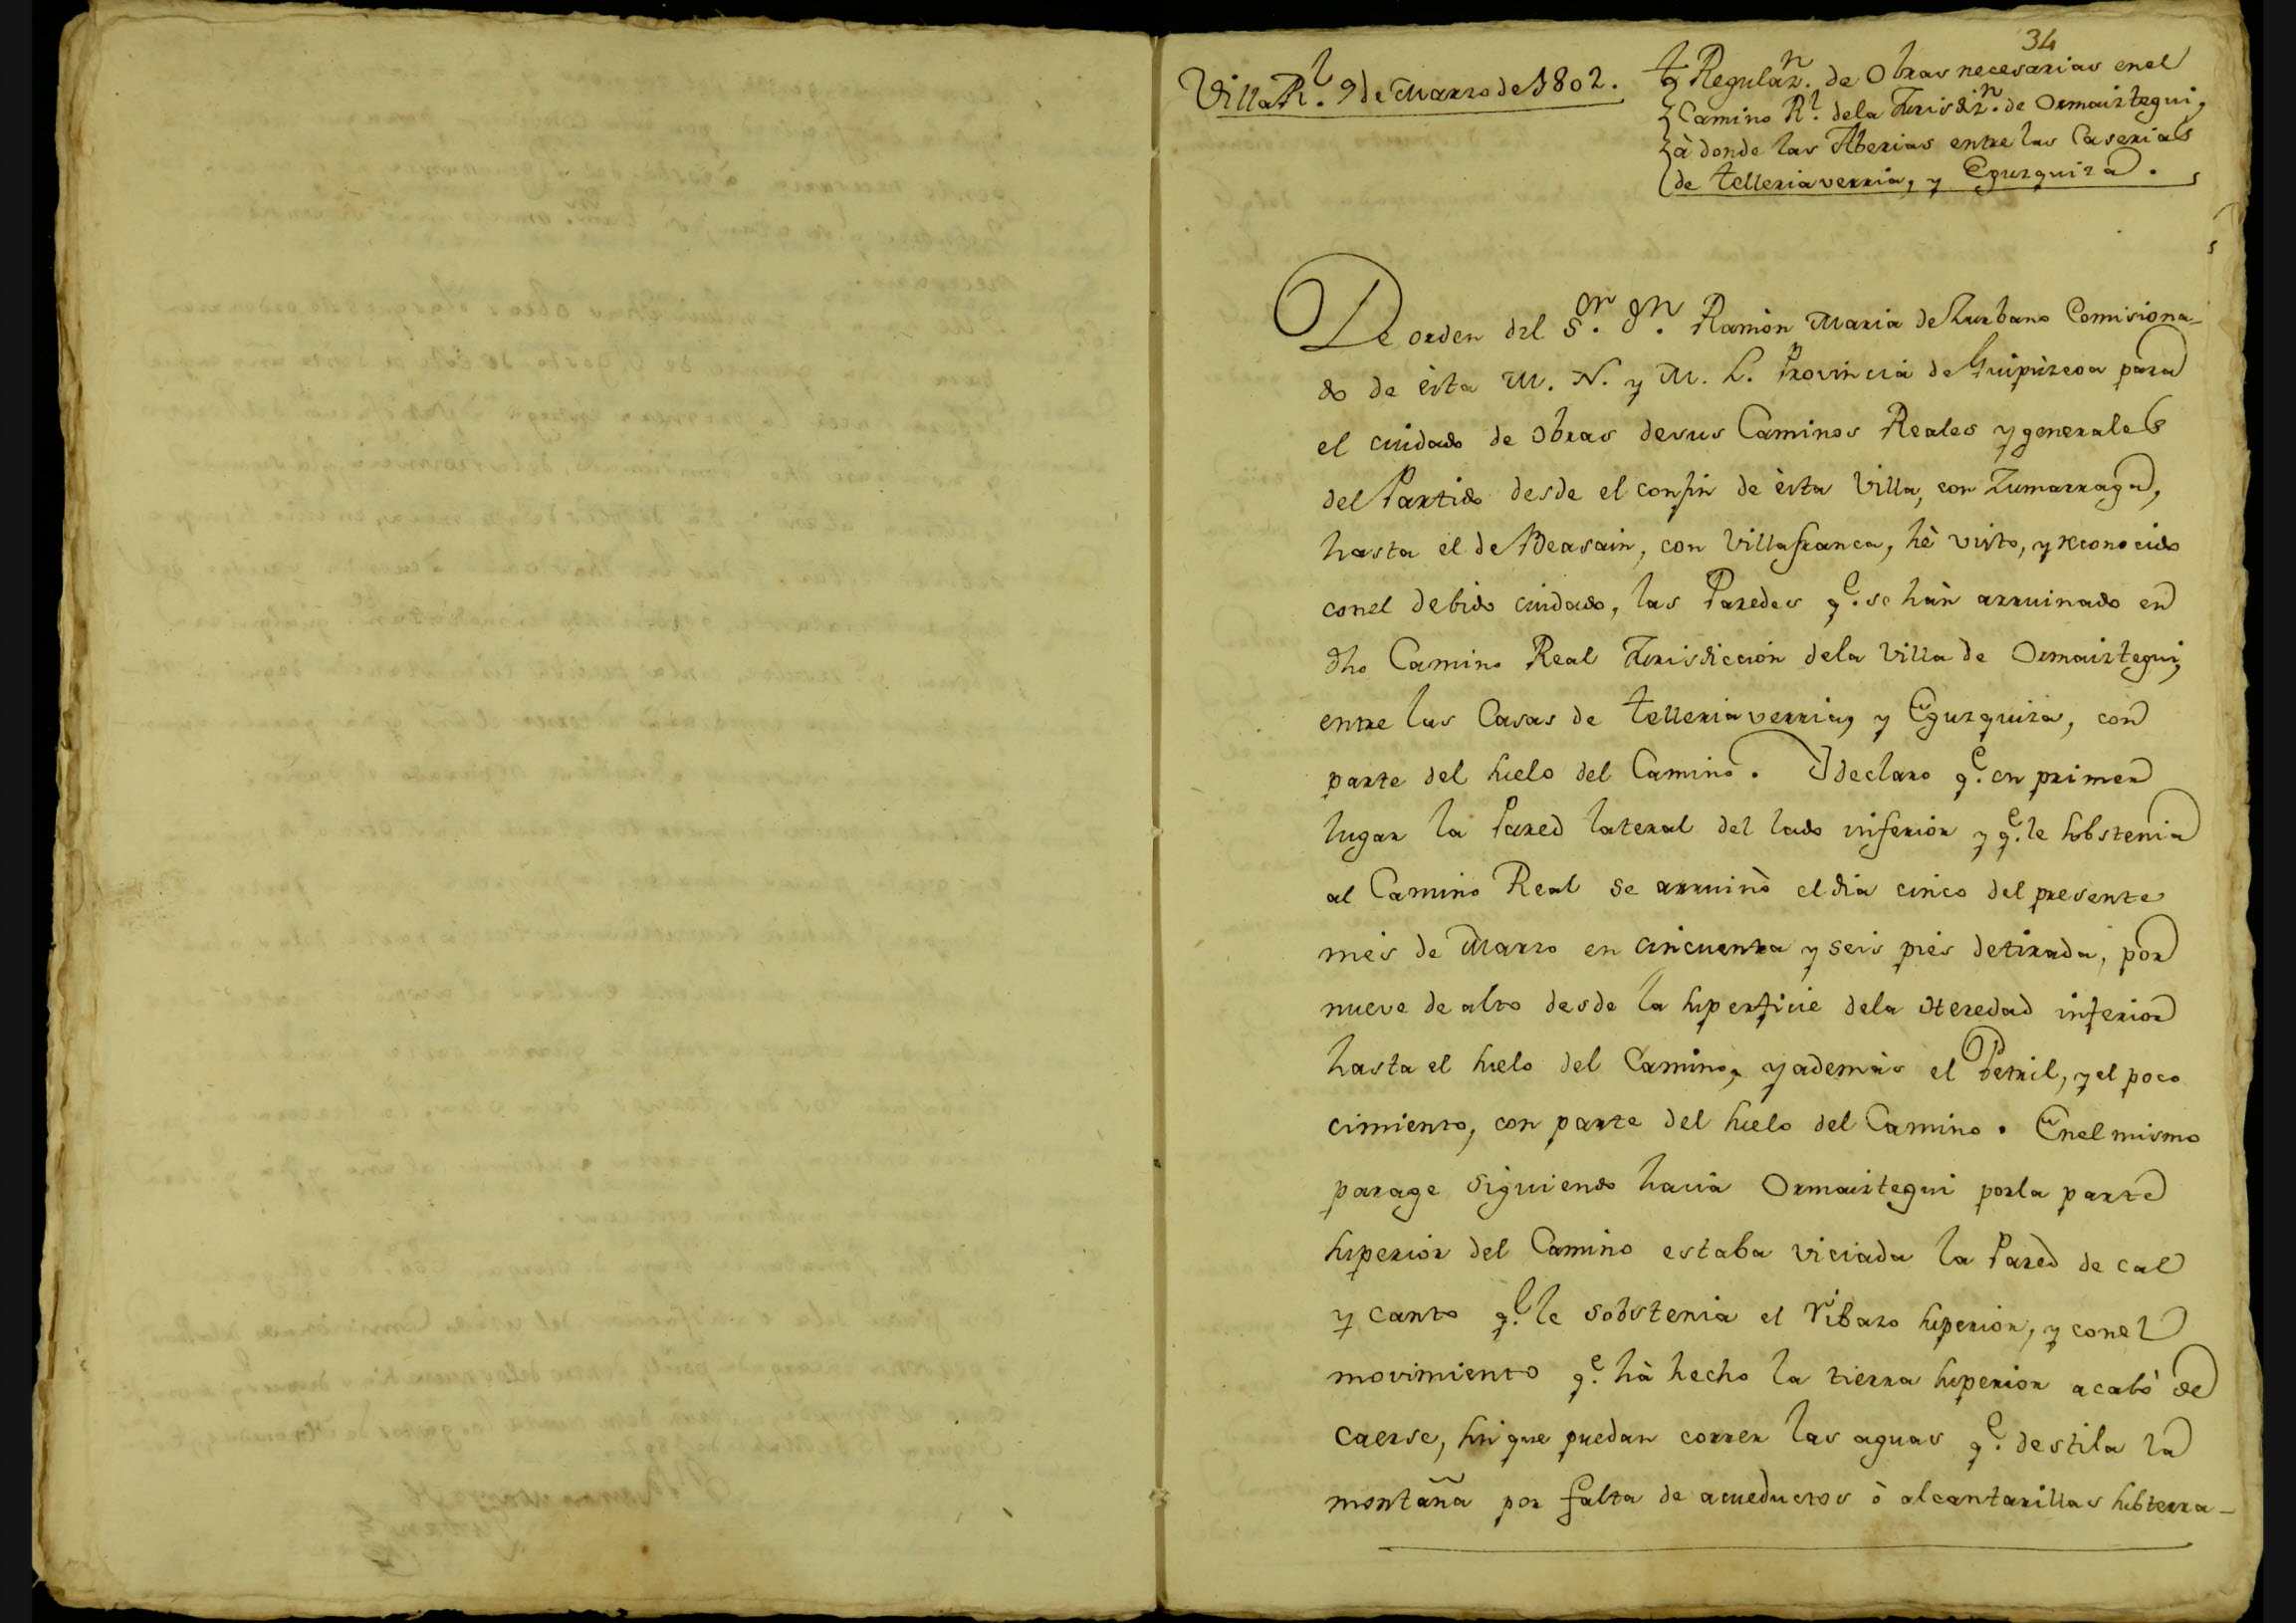 34
Villa R.l 9 de Marzo de 1802.
Regulaz.n de Obras necesarias enel
Camino R.l dela Jurisdiz.n de Ormaiztegui,
à donde las Aberias entre las Caserias
de Telleriaverria, y Eguzquiza.
De orden del S.or D.n Ramòn Maria de Zurbano Comisiona-
do de èsta M. N. y M. L. Provincia de Guipùzcoa para
el cuidado de obras desus Caminos Reales y generales
del Partido desde el confin de èsta Villa, con Zumarraga,
hasta el de Beasain, con Villafranca, hè visto, y reconocido
conel debido cuidado, las Paredes q.e se hàn arruinado en
dho Camino Real Jurisdicciòn dela Villa de Ormaiztegui,
entre las Casas de Telleriaverria, y Eguzquiza, con
parte del suelo del Camino. I declaro q.e en primer
lugar la Pared lateral del lado inferior y q.e le sobstenia
al Camino Real se arruinò el dia cinco del presente
mès de Marzo en cincuenta y seis piès detirada, por
nueve de alto desde la superficie dela Heredad inferior
hasta el suelo del Camino, y ademàs el Petril, y el poco
cimiento, con parte del suelo del Camino. Enel mismo
parage siguiendo hacia Ormaiztegui porla parte
superiòr del Camino estaba viciada la Pared de cal
y canto q.e le sobstenia el ribazo superior, y conel
movimiento q.e hà hecho la tierra superior acabò de
caerse, sin que puedan correr las aguas q.e destila la
montaña por falta de acueductos ò alcantarillas subterra-